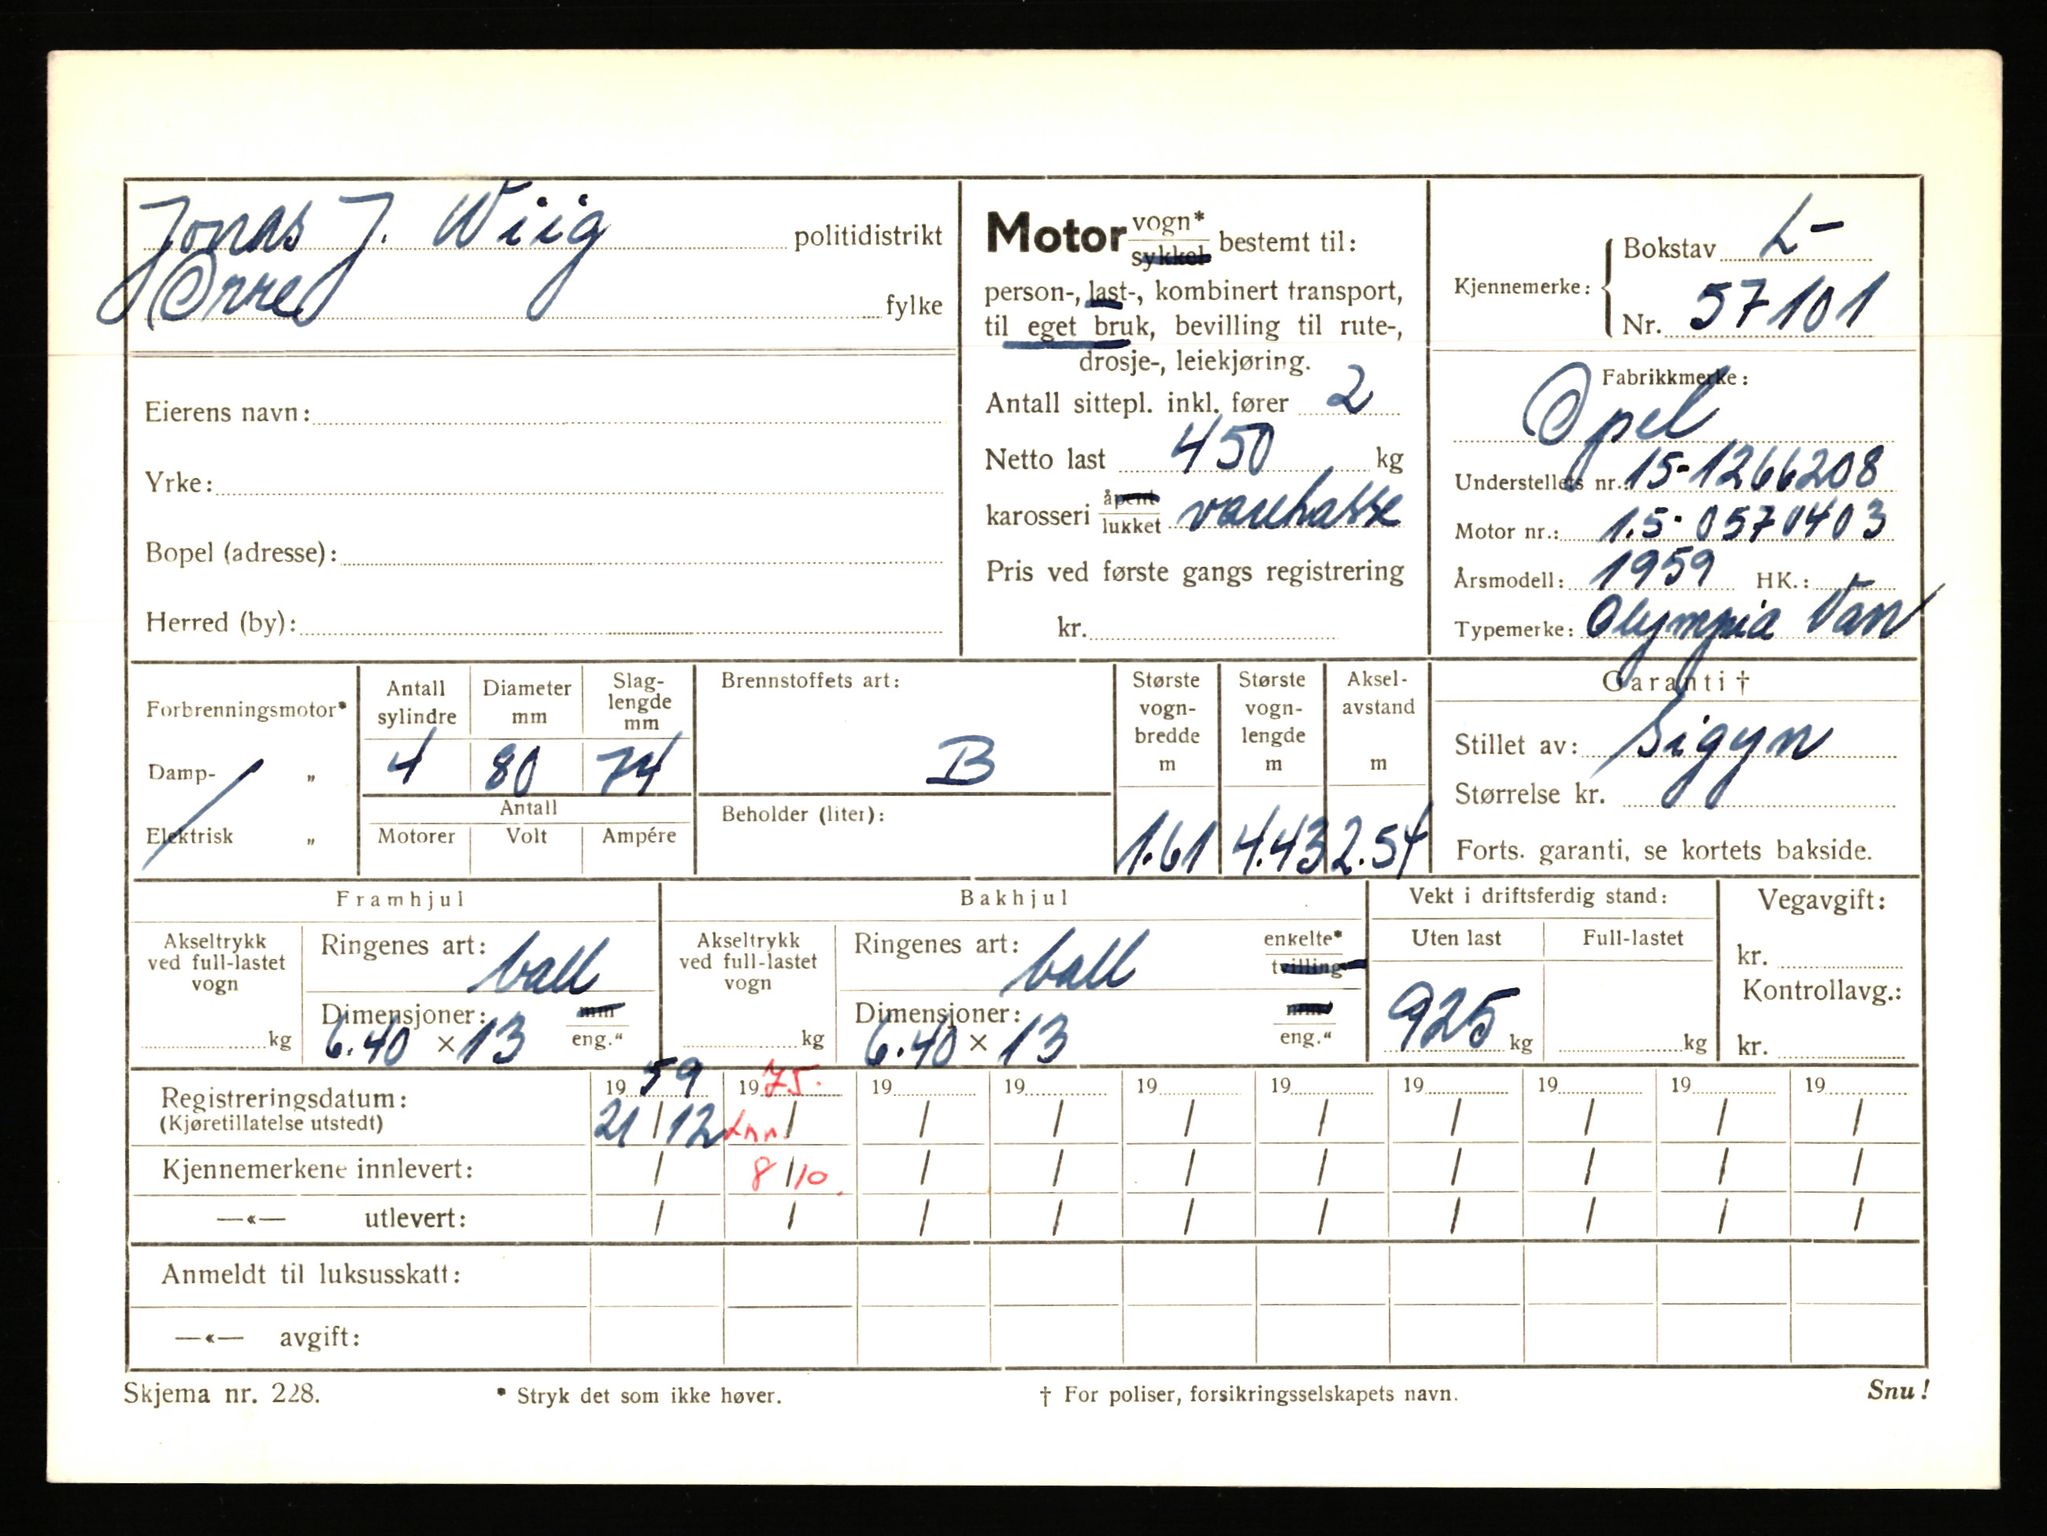 Jonas J. Wiig politidistrikt
Orre fylke
Eierens navn:
Yrke:
Bopel (adresse):
Herred (by):
Motor vogn* sykkel bestemt til:
person-, last-, kombinert transport,
til eget bruk, bevilling til rute-,
drosje-, leiekjøring.
Antall sittepl. inkl. fører 2
Netto last 450 kg
karosseri åpent lukket varekasse
Pris ved første gangs registrering
kr.
Kjennemerke: Bokstav L-
Nr. 57101
Fabrikkmerke:
Opel
Understellets nr. 15-1266208
Motor nr.: 1.5-0570403
Årsmodell: 1959 HK.: -
Typemerke: Olympia Van
Forbrenningsmotor*
Damp- „
Elektrisk „
Antall sylindre Diameter mm Slag-lengde mm
4 80 74
Antall
Motorer Volt Ampére
Brennstoffets art:
B
Beholder (liter):
Største vogn-bredde m Største vogn-lengde m Aksel-avstand m
1.61 4.43 2.54
Garanti †
Stillet av: Sigyn
Størrelse kr.
Forts. garanti, se kortets bakside.
Framhjul
Akseltrykk ved full-lastet vogn
kg
Ringenes art: ball
Dimensjoner: mm
6.40 × 13 eng."
Bakhjul
Akseltrykk ved full-lastet vogn
kg
Ringenes art: ball enkelte* tvilling
Dimensjoner: mm
6.40 × 13 eng."
Vekt i driftsferdig stand:
Uten last Full-lastet
925 kg kg
Vegavgift:
kr.
Kontrollavg.:
kr.
Registreringsdatum: 19 59 19 75. 19 19 19 19 19 19 19 19
(Kjøretillatelse utstedt) 21 / 12 / / / / / / / / /
Kjennemerkene innlevert: / 8/10. / / / / / / / /
—«— utlevert: / / / / / / / / / /
Anmeldt til luksusskatt:
—«— avgift:
Skjema nr. 228. * Stryk det som ikke høver. † For poliser, forsikringsselskapets navn. Snu!